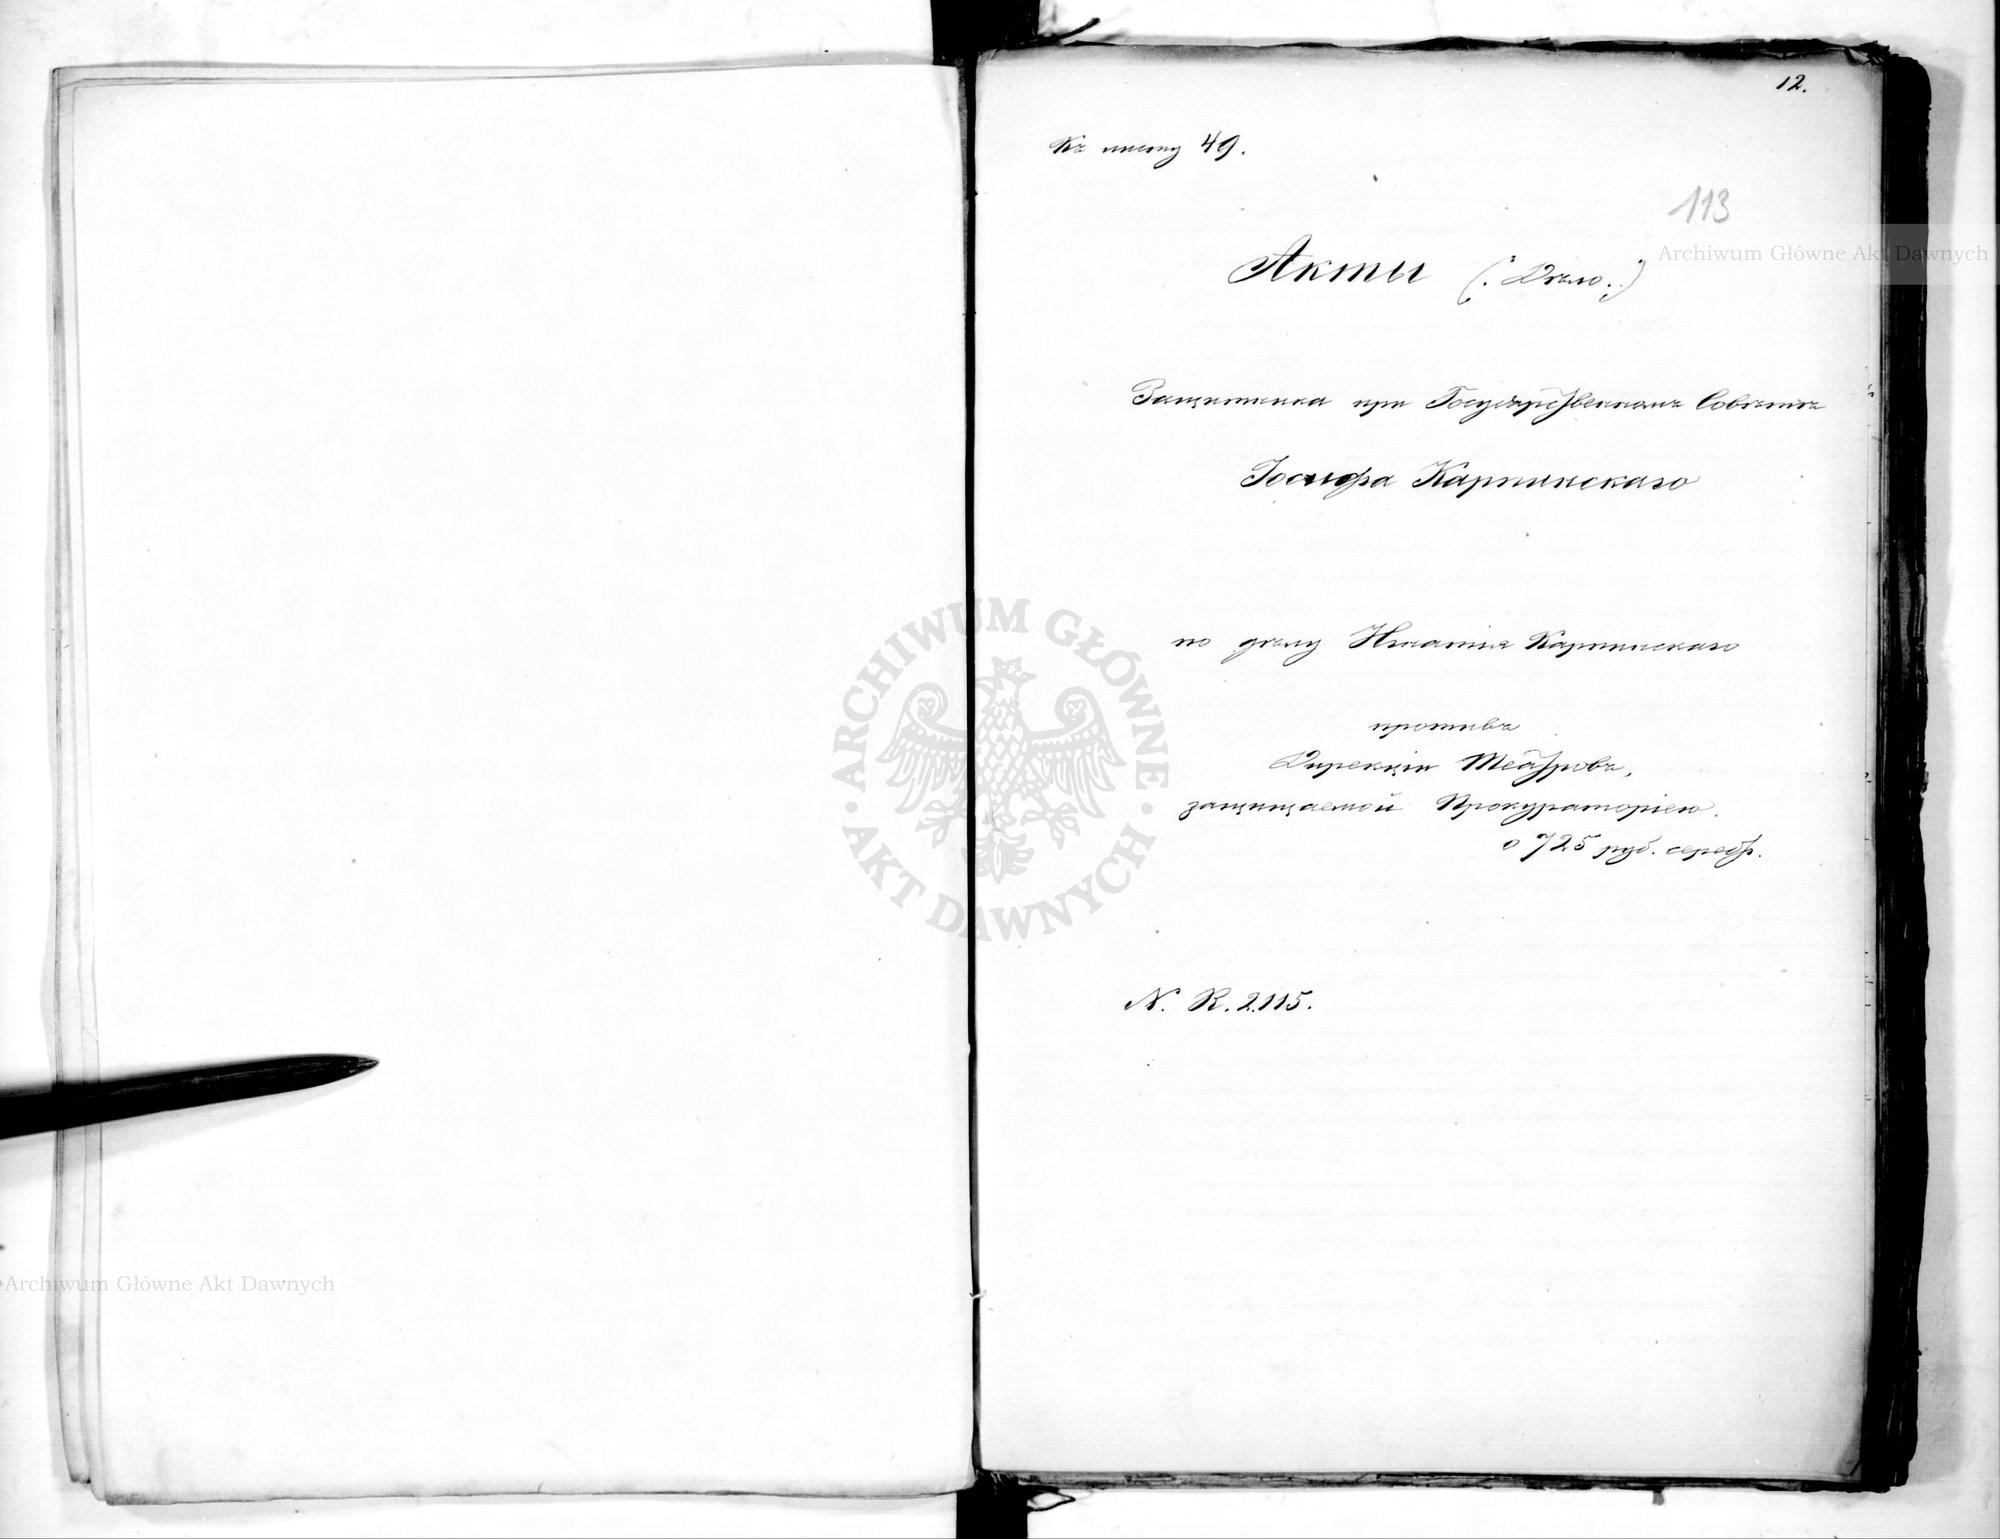 12.
Къ листу 49.
113
Акты (: Дѣло :)
Защитника при Государственномъ Совѣтѣ
Іосифа Карпинскаго
по дѣлу Игнатія Карпинскаго
противъ
Дирекціи Театровъ,
защищаемой Прокураторіею.
о 725 руб. серебр.
N. R. 2115.
Archiwum Główne Akt Dawnych
ARCHIWUM GŁÓWNE · AKT DAWNYCH ·
Archiwum Główne Akt Dawnych